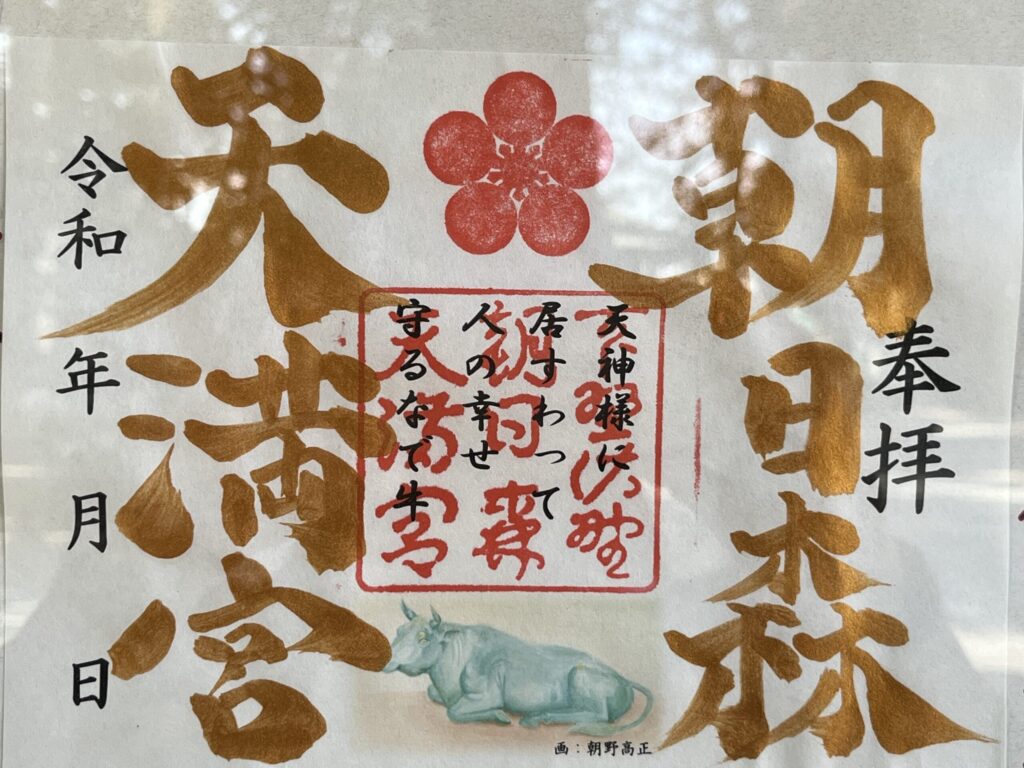 奉拝
朝日森
天満宮
天神様に
居すわって
人の幸せ
守るなで牛
朝日森
天満宮
令和 年 月 日
画：朝野高正